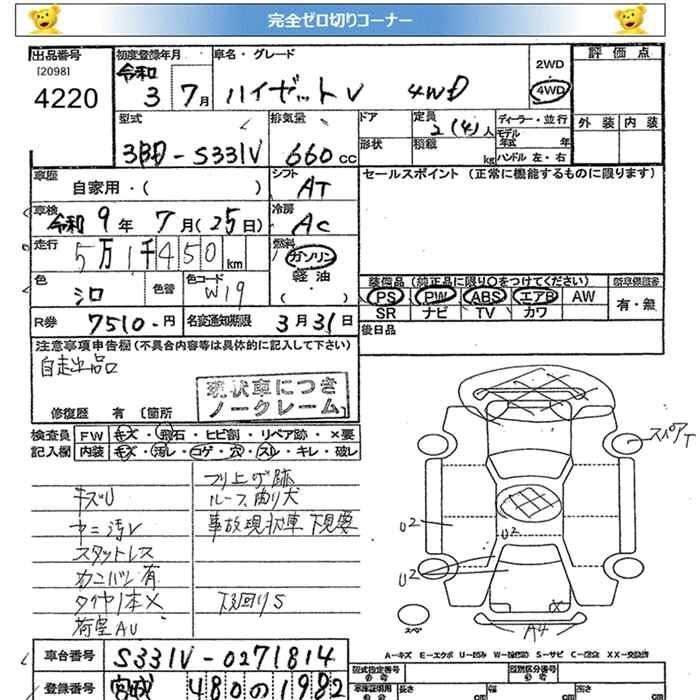 完全ゼロ切りコーナー
出品番号
[2098]
4220
初度登録年月
令和
3 7月
車名・グレード
ハイゼットV 4WD
2WD
4WD
評価点
外装 内装
型式
3BD-S331V
排気量
660cc
ドア
形状
定員
2(4)人
積載
kg
ディーラー・並行
モデル
年式 年
ハンドル 左・右
車歴
自家用・( )
シフト
AT
車検
令和9年7月(25日)
冷房
AC
走行
5万1千450km
燃料
ガソリン
軽油
( )
色
シロ
色替
色コード
W19
セールスポイント(正常に機能するものに限ります)
装備品(純正品に限り○をつけてください)
PS PW ABS エアB AW
SR ナビ TV カワ
新車保証書
有・無
R券
7510-円
名変通知期限
3月31日
後日品
注意事項申告欄(不具合内容等は具体的に記入して下さい)
自走出品
現状車につき
ノークレーム
修復歴 有 [箇所
検査員
記入欄
FW キズ・飛石・ヒビ割・リペア跡・×要
内装 キズ・汚レ・コゲ・穴・スレ・キレ・破レ
キズU
ヤニ汚レ
スタットレス
カニバン有
タイヤ1本X
荷室AU
ルーフ曲り大
事故現状車 下見要
下回りS
スペアT
U2
U2
U2
スペア
A4
A-キズ E-エクボ U-凹ミ S-サビ XX-交換済
車台番号
S331V-0271814
登録番号
宮城 480の1982
型式指定番号
必着
類別区分番号
必着
長さ
cm
幅
cm
高さ
cm